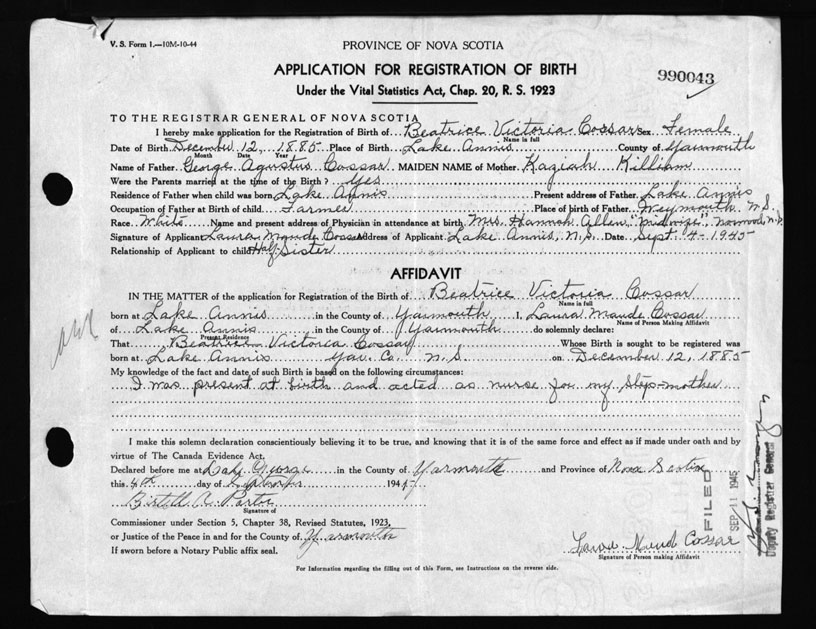 V. S. Form 1.—10M-10-44
PROVINCE OF NOVA SCOTIA
APPLICATION FOR REGISTRATION OF BIRTH
990043
Under the Vital Statistics Act, Chap. 20, R. S. 1923
TO THE REGISTRAR GENERAL OF NOVA SCOTIA
I hereby make application for the Registration of Birth of Beatrice Victoria Cossar Sex Female
Name in full
Date of Birth December 12, 1885 Place of Birth Lake Annis County of Yarmouth
Month Date Year
Name of Father George Agustus Cossar MAIDEN NAME of Mother Kaziah Killiam
Were the Parents married at the time of the Birth? Yes
Residence of Father when child was born Lake Annis Present address of Father Lake Annis
Occupation of Father at Birth of child Farmer Place of birth of Father Weymouth N.S.
Race White Name and present address of Physician in attendance at birth Mrs. Hannah Allen, "Midwife", Norwood, N.S.
Signature of Applicant Laura Maude Cossar Address of Applicant Lake Annis, N.S. Date Sept. 4- 1945
Relationship of Applicant to child Half-Sister
AFFIDAVIT
IN THE MATTER of the application for Registration of the Birth of Beatrice Victoria Cossar
Name in full
born at Lake Annis in the County of Yarmouth I, Laura Maude Cossar
Name of Person Making Affidavit
of Lake Annis in the County of Yarmouth do solemnly declare:
Present Residence
That Beatrice Victoria Cossar Whose Birth is sought to be registered was
born at Lake Annis Yar. Co. N.S. on December 12, 1885
My knowledge of the fact and date of such Birth is based on the following circumstances:
I was present at birth and acted as nurse for my step-mother
I make this solemn declaration conscientiously believing it to be true, and knowing that it is of the same force and effect as if made under oath and by
virtue of The Canada Evidence Act.
Declared before me at Lake George in the County of Yarmouth and Province of Nova Scotia
this 4th day of September 1945
Porter
Signature of
Commissioner under Section 5, Chapter 38, Revised Statutes, 1923,
or Justice of the Peace in and for the County of Yarmouth
If sworn before a Notary Public affix seal.
Laura Maud Cossar
Signature of Person making Affidavit
For Information regarding the filling out of this Form, see Instructions on the reverse side.
FILED
SEP 11 1945
Deputy Registrar General